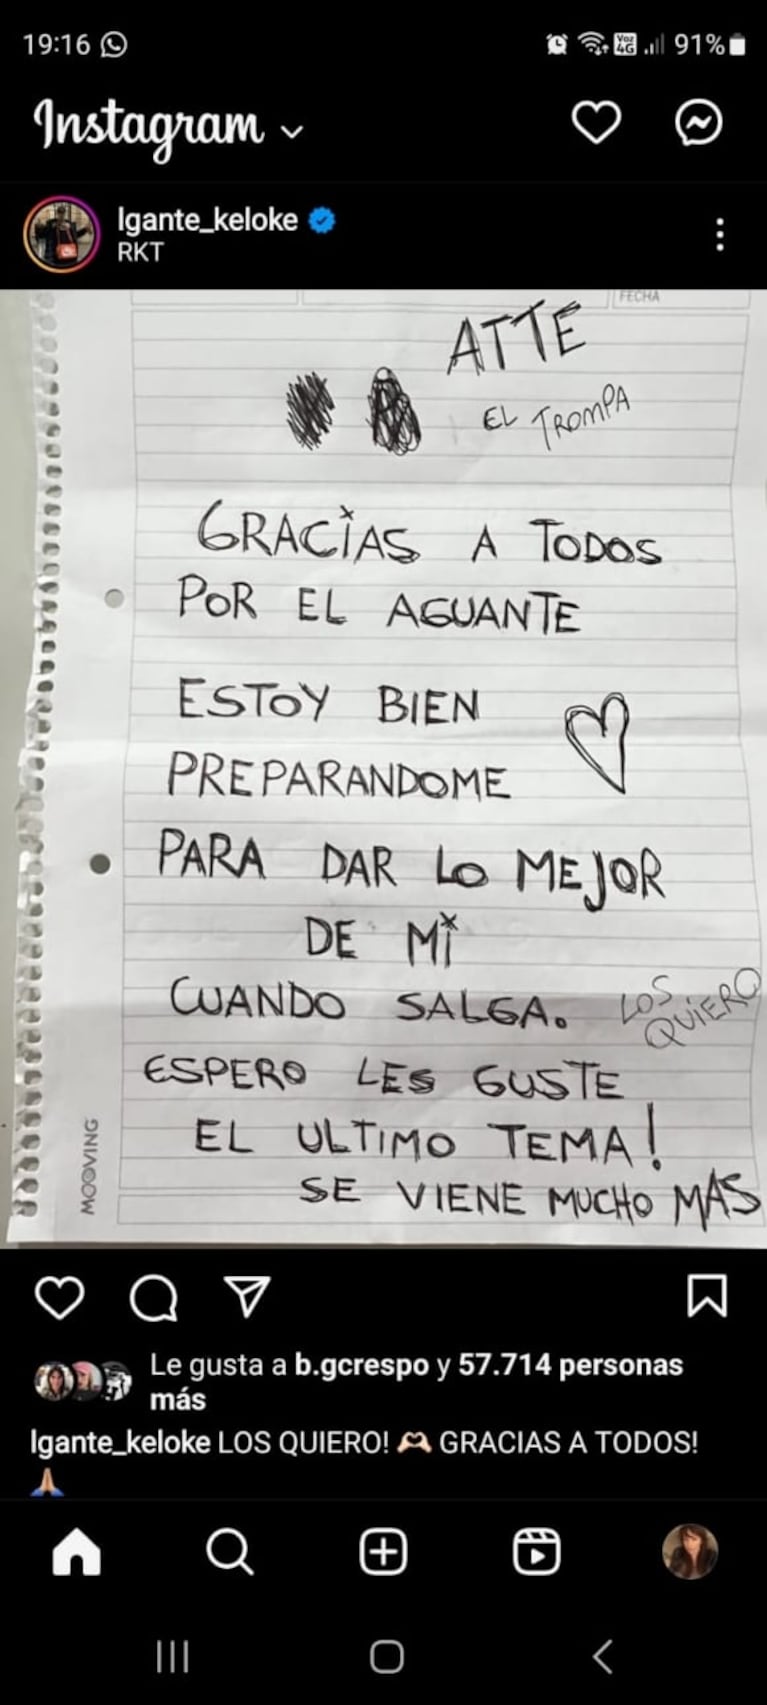 19:16
Voz 4G
91%
Instagram
lgante_keloke
RKT
FECHA
ATTE
EL TROMPA
GRACIAS A TODOS
POR EL AGUANTE
ESTOY BIEN
PREPARANDOME
PARA DAR LO MEJOR
DE MI
CUANDO SALGA.
LOS QUIERO
ESPERO LES GUSTE
EL ULTIMO TEMA!
SE VIENE MUCHO MAS
MOOVING
Le gusta a b.gcrespo y 57.714 personas
más
lgante_keloke LOS QUIERO! 🫶🏼 GRACIAS A TODOS!
🙏🏼